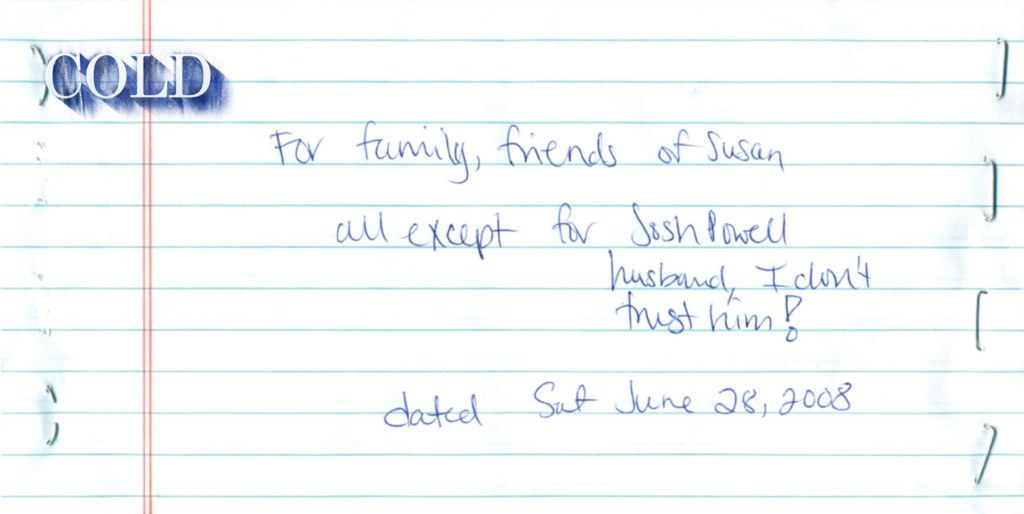 COLD
For family, friends of Susan
all except for Josh Powell
husband, I don't
trust him!
dated Sat June 28, 2008